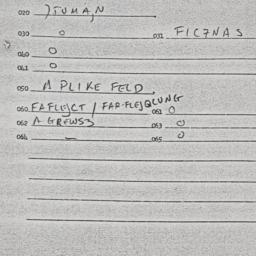 020 JTUMA,N
030 0 031 FIC7NAS
040 0
041 0
050 A PLIKE FELD
060 FAFLEJCT / FAR-FLEJQLUNG 061 0
062 A GREWS3 063 0
064 – 065 0